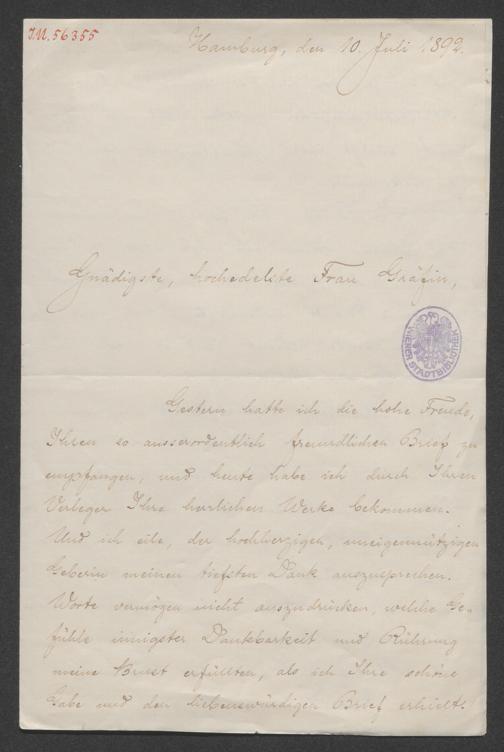 I.N. 56355
Hamburg, den 10. Juli 1892.
Gnädigste, hochedelste Frau Gräfin,
WIENER STADTBIBLIOTHEK
Gestern hatte ich die hohe Freude,
Ihren so ausserordentlich freundlichen Brief zu
empfangen, und heute habe ich durch Ihren
Verleger Ihre herrlichen Werke bekommen.
Und ich eile, der hochherzigen, uneigennützigen
Geberin meinen tiefsten Dank auszusprechen.
Worte vermögen nicht auszudrücken, welche Ge-
fühle innigster Dankbarkeit und Rührung
meine Brust erfüllten, als ich Ihre schöne
Gabe und den liebenswürdigen Brief erhielt.